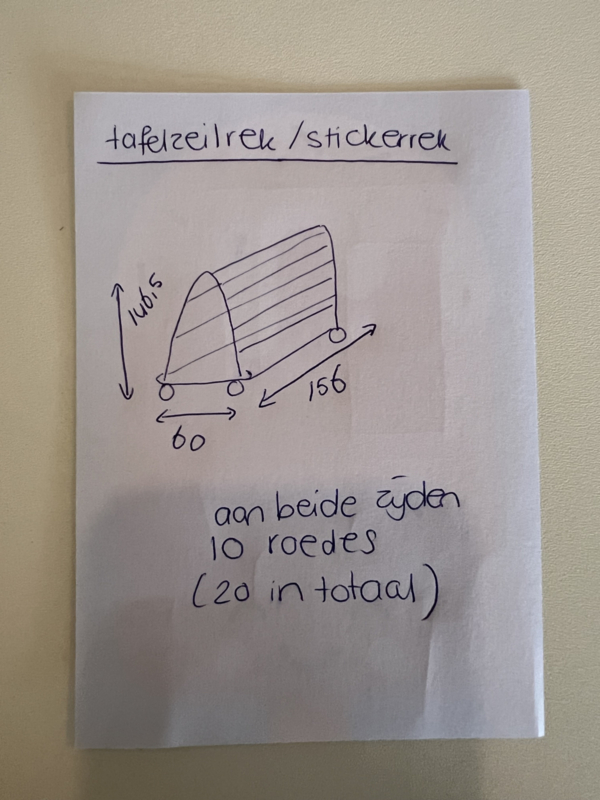 tafelzeilrek / stickerrek
146,5
156
60
aan beide zijden
10 roedes
(20 in totaal)